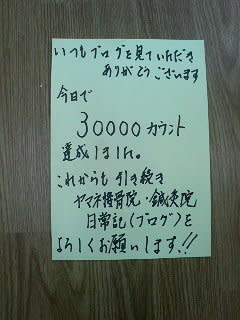 いつもブログを見ていただき
ありがとうございます
今日で
30000カウント
達成しました。
これからも引き続き
ヤマネ接骨院・鍼灸院
日常記(ブログ)を
よろしくお願いします!!